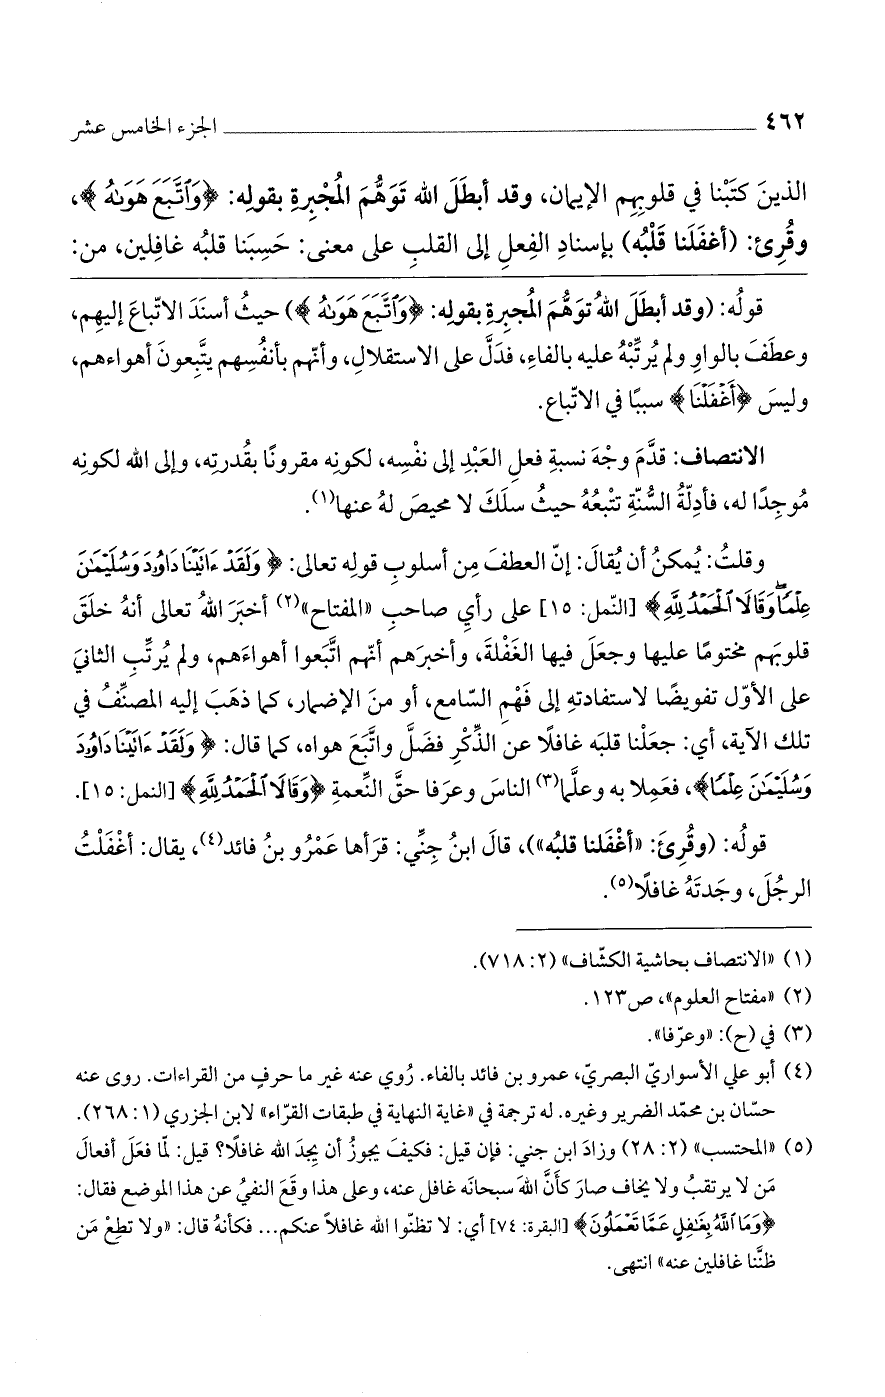 ٤٦٢ الجزء الخامس عشر
الذينَ كتَبْنا في قلوبِهِم الإيمان، وقد أبطَلَ الله تَوَهُّمَ المُجْبِرةِ بقولِه: ﴿وَٱتَّبَعَ هَوَىٰهُ﴾،
وقُرِئ: (أغفَلَنا قَلْبُه) بإسنادِ الفِعلِ إلى القلبِ على معنى: حَسِبَنا قلبُه غافِلين، من:
قولُه: (وقد أبطَلَ اللهُ توَهُّمَ المُجبِرةِ بقولِه: ﴿وَٱتَّبَعَ هَوَىٰهُ﴾) حيثُ أسنَدَ الاتّباعَ إليهِم،
وعطَفَ بالواوِ ولم يُرتِّبْهُ عليه بالفاءِ، فدَلَّ على الاستقلالِ، وأنّهم بأنفُسِهم يتَّبِعونَ أهواءهم،
وليسَ ﴿أَغْفَلْنَا﴾ سببًا في الاتّباع.
الانتصاف: قدَّمَ وجْهَ نسبةِ فعلِ العَبْدِ إلى نفْسِه، لكونِه مقرونًا بقُدرتِه، وإلى الله لكونِه
مُوجِدًا له، فأدِلّةُ السُّنّةِ تتْبعُهُ حيثُ سلَكَ لا محيصَ لهُ عنها(١).
وقلتُ: يُمكنُ أن يُقالَ: إنّ العطفَ مِن أسلوبِ قولِه تعالى: ﴿وَلَقَدْ ءَاتَيْنَا دَاوُۥدَ وَسُلَيْمَـٰنَ
عِلْمًا ۖ وَقَالَا ٱلْحَمْدُ لِلَّهِ﴾ [النّمل: ١٥] على رأيِ صاحبِ «المفتاح»(٢) أخبَرَ اللهُ تعالى أنهُ خلَقَ
قلوبَهم مختومًا عليها وجعَلَ فيها الغَفْلةَ، وأخبرَهم أنّهم اتَّبَعوا أهواءَهم، ولم يُرتِّبِ الثانيَ
على الأوّل تفويضًا لاستفادتهِ إلى فَهْمِ السّامع، أو منَ الإضمار، كما ذهَبَ إليه المصنِّفُ في
تلك الآية، أي: جعَلْنا قلبَه غافلًا عن الذِّكْرِ فضَلَّ واتَّبَعَ هواه، كما قال: ﴿وَلَقَدْ ءَاتَيْنَا دَاوُۥدَ
وَسُلَيْمَـٰنَ عِلْمًا﴾، فعَمِلا به وعلَّما(٣) الناسَ وعرَفا حقَّ النِّعمةِ ﴿وَقَالَا ٱلْحَمْدُ لِلَّهِ﴾ [النمل: ١٥].
قولُه: (وقُرِئ: «أغْفَلَنا قلبُه»)، قالَ ابنُ جِنِّي: قرَأها عَمْرُو بنُ فائد(٤)، يقال: أغْفَلْتُ
الرجُلَ، وجَدتَهُ غافلًا(٥).
(١) «الانتصاف بحاشية الكشّاف» (٢: ٧١٨).
(٢) «مفتاح العلوم»، ص١٢٣.
(٣) في (ح): «وعرّفا».
(٤) أبو علي الأسواريّ البصريّ، عمرو بن فائد بالفاء. رُوي عنه غير ما حرفٍ من القراءات. روى عنه
حسّان بن محمّد الضرير وغيره. له ترجمة في «غاية النهاية في طبقات القرّاء» لابن الجزري (١: ٢٦٨).
(٥) «المحتسب» (٢: ٢٨) وزادَ ابن جني: فإن قيل: فكيفَ يجوزُ أن يجِدَ الله غافلًا؟ قيل: لمّا فعَلَ أفعالَ
مَن لا يرتقبُ ولا يخاف صارَ كأنَّ اللهَ سبحانَه غافل عنه، وعلى هذا وقَعَ النفيُ عن هذا الموضع فقال:
﴿وَمَا ٱللَّهُ بِغَـٰفِلٍ عَمَّا تَعْمَلُونَ﴾ [البقرة: ٧٤] أي: لا تظنّوا الله غافلاً عنكم... فكأنهُ قال: «ولا تطِعْ مَن
ظنَّنا غافلين عنه» انتهى.